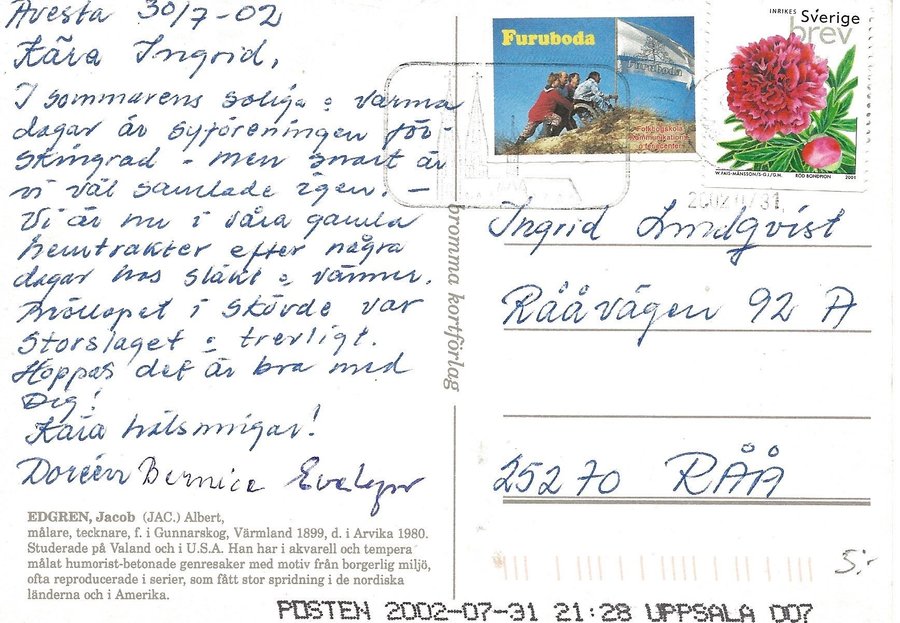 Avesta 30/7-02
Kära Ingrid,
I sommarens soliga o varma
dagar är syföreningen för-
skingrad - men snart är
vi väl samlade igen. -
Vi är nu i våra gamla
hemtrakter efter några
dagar hos släkt o vänner.
Bröllopet i Skövde var
storslaget o trevligt.
Hoppas det är bra med
Dig!
Kära hälsningar!
Doreen Bernice Evelyn
EDGREN, Jacob (JAC.) Albert,
målare, tecknare, f. i Gunnarskog, Värmland 1899, d. i Arvika 1980.
Studerade på Valand och i U.S.A. Han har i akvarell och tempera
målat humorist-betonade genresaker med motiv från borgerlig miljö,
ofta reproducerade i serier, som fått stor spridning i de nordiska
länderna och i Amerika.
bromma kortförlag
Furuboda
Furuboda
Folkhögskola
Kommunikations
o fg center
INRIKES Sverige
brev
W. FAIS-MÅNSSON/S-G.I./G.M. RÖD BONDPION 2001
20020731
Ingrid Lundqvist
Rååvägen 92 A
25270 RÅÅ
5:-
POSTEN 2002-07-31 21:28 UPPSALA 007